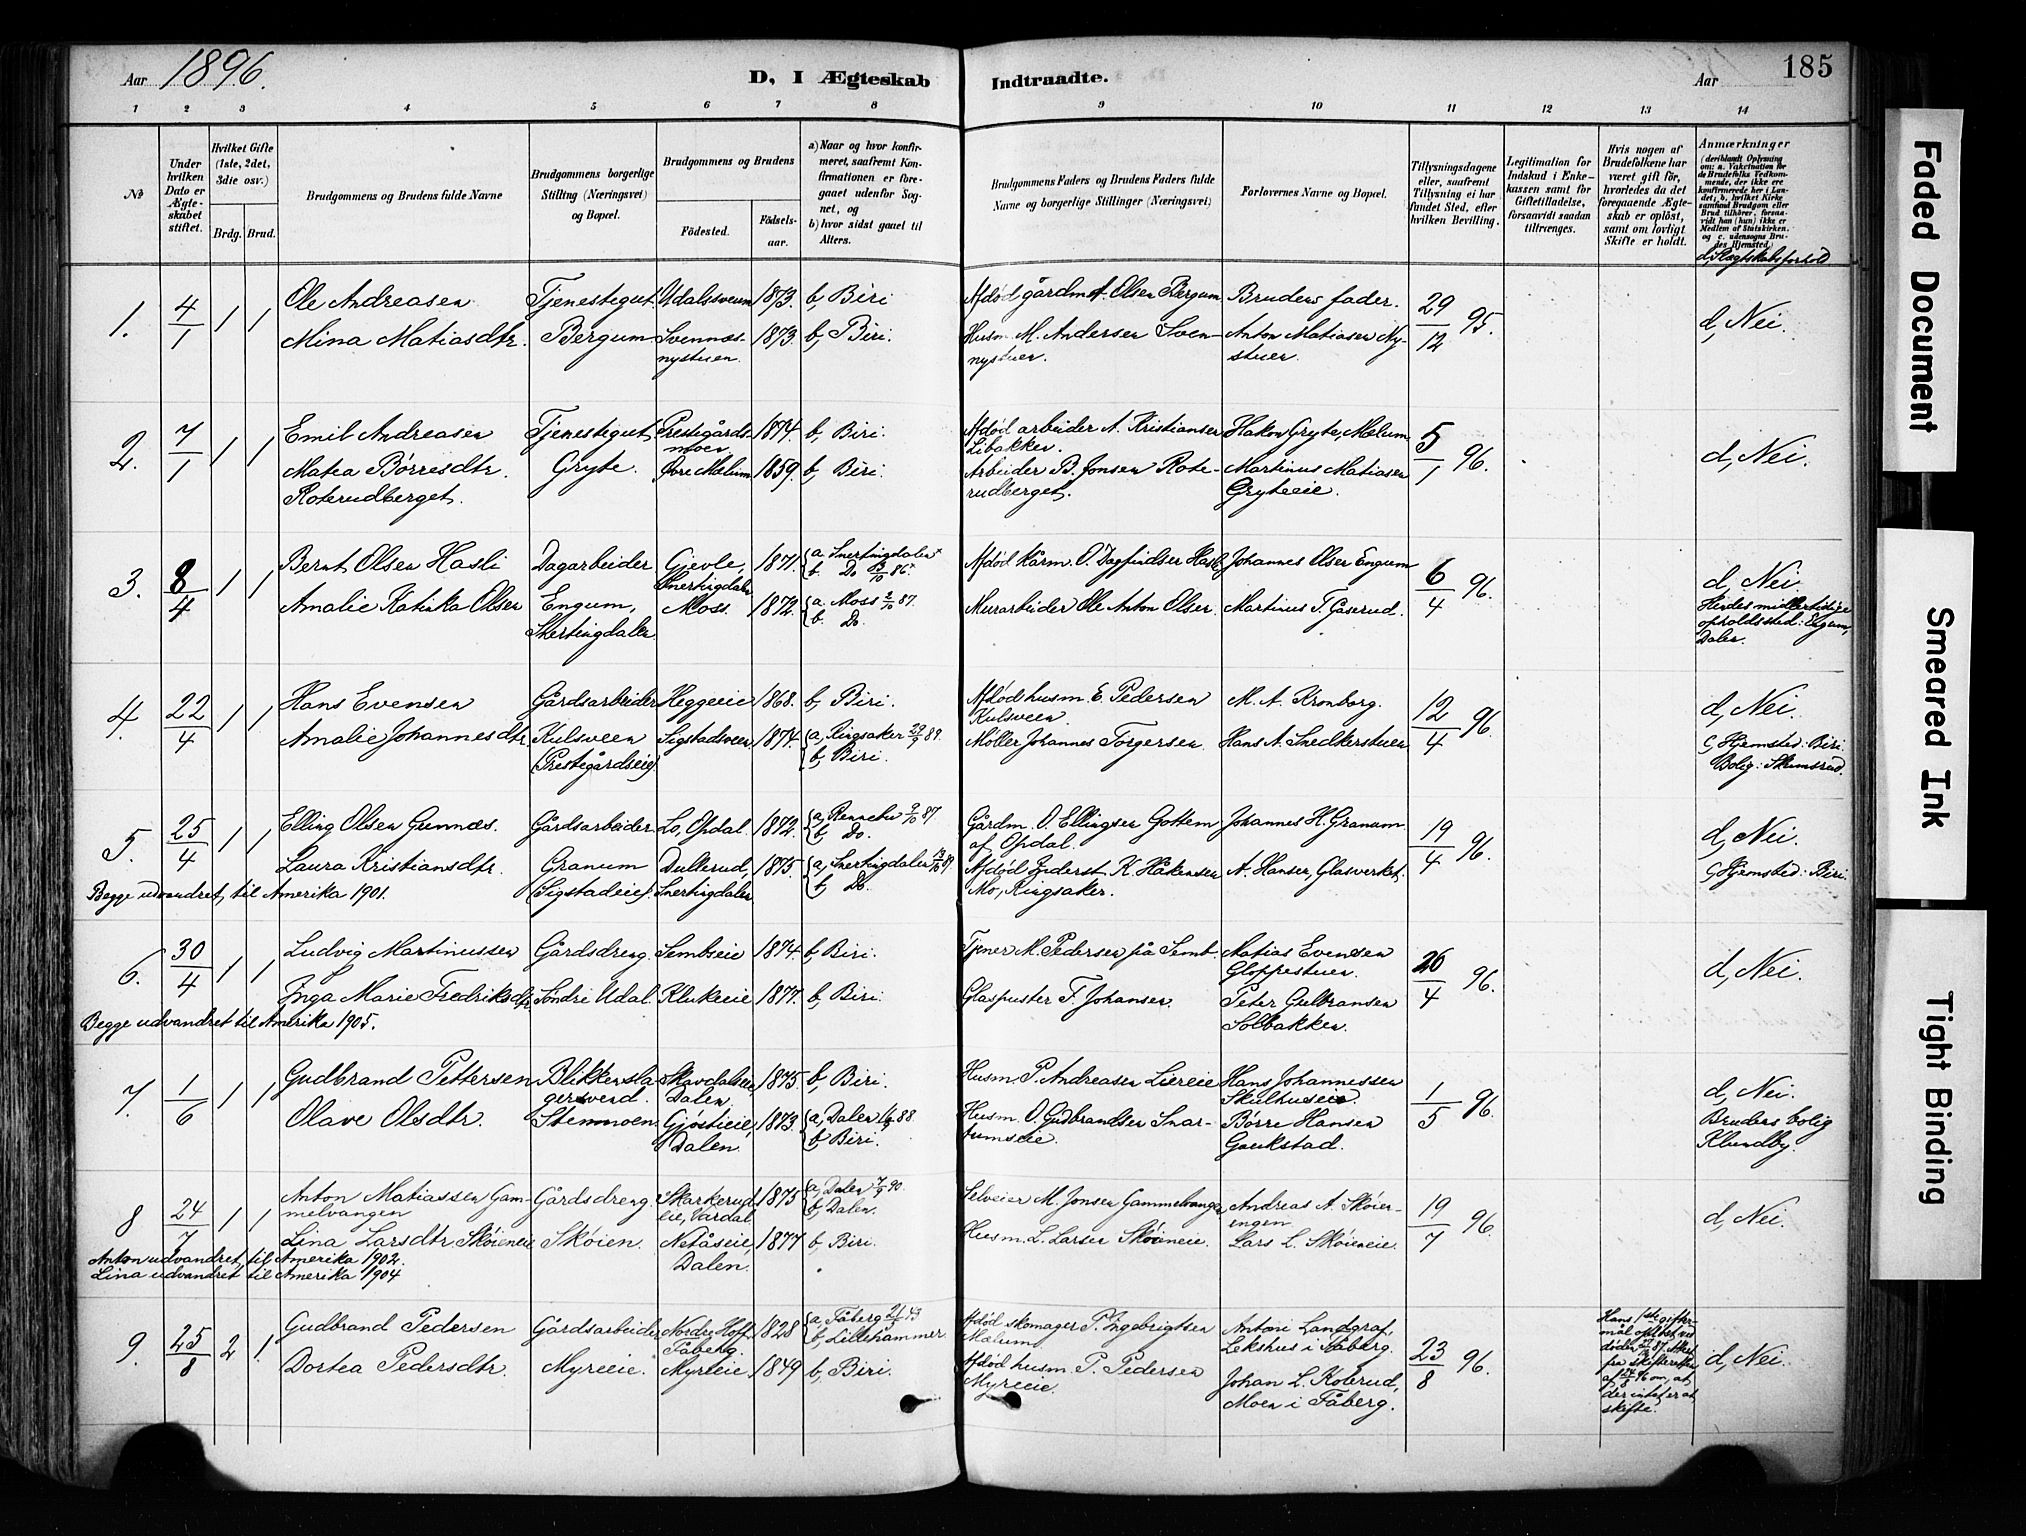 Aar 1896. D, I Ægteskab Indtraadte. Aar 185
1 2 3 4 5 6 7 8 9 10 11 12 13 14
No
Under hvilken Dato er Ægteskabet stiftet.
Hvilket Gifte (1ste, 2det, 3die osv.)
Brdg. Brud.
Brudgommens og Brudens fulde Navne
Brudgommens borgerlige Stilling (Næringsvei) og Bopæl.
Brudgommens og Brudens
Fødested.
Fødsels-aar.
a) Naar og hvor konfirmeret, saafremt Konfirmationen er foregaaet udenfor Sognet, og
b) hvor sidst gaaet til Alters.
Brudgommens Faders og Brudens Faders fulde Navne og borgerlige Stillinger (Næringsvei)
Forlovernes Navne og Bopæl.
Tillysningsdagene eller, saafremt Tillysning ei har fundet Sted, efter hvilken Bevilling.
Legitimation for Indskud i Enkekassen samt for Giftetilladelse, forsaavidt saadan tiltrænges.
Hvis nogen af Brudefolkene har været gift før, hvorledes da det foregaaende Ægteskab er opløst, samt om lovligt Skifte er holdt.
Anmærkninger
(deriblandt Oplysning om: a. Vakcination for de Brudefolks Vedkommende, der ikke ere konfirmerede her i Landet; b. hvilket Kirkesamfund Brudgom eller Brud tilhører, forsaavidt han (hun) ikke er Medlem af Statskirken, og c. udensogns Brudes Hjemsted.)
d, Slægtskabsforhold
1. 4/1 1 1 Ole Andreasen Tjenestegut Udalssveum 1873. b, Biri Afdød gårdm. A. Olsen Bergum Brudens fader. 29/12 95. d, Nei.
Mina Matiasdtr. Bergum Svennæs- 1873. b, Biri. Husm. M. Andersen Sven- Anton Matiasen Ny-
nystuen. nystuen. stuen.
2. 7/1 1 1 Emil Andreasen Tjenestegut Prestegårds- 1874. b, Biri. Afdød arbeider A. Kristiansen Hakon Gryte, Mælum 5/1 96. d, Nei.
moen Libakken
Matea Børresdtr. Gryte. Øvre Mælum 1859. b, Biri. Arbeider B. Jonsen Rote- Martinus Matiasen
Roterudberget. rudberget. Gryteeie.
3. 8/4 1 1 Bernt Olsen Hasli Dagarbeider Gjevle, 1871. a. Snertingdalen Afdød Kårm. O. Dagfindsen Hasli Johannes Olsen Engum 6/4 96. d, Nei
Snertingdalen b. Do 13/10 86.
Amalie Katinka Olsen Engum, Moss. 1872. a. Moss 2/10 87. Murarbeider Ole Anton Olsen. Martinus T. Gåserud. Hendes midlertidige
Snertingdalen. b. Do. opholdssted: Engum,
Dalen.
4. 22/4 1 1 Hans Evensen Gårdsarbeider Heggeeie 1868. b, Biri. Afdød husm. E. Pedersen M. A. Kronborg. 12/4 96. d, Nei.
Kulsveen.
Amalie Johannesdtr. Kulsveen Sigstadsveen 1874. a, Ringsaker 29/9 89. Møller Johannes Torgersen Hans A. Snedkerstuen c, Hjemsted: Biri
(Prestegårdseie) b, Biri. Bolig: Skumsrud.
5. 25/4 1 1 Elling Olsen Grunnæs. Gårdsarbeider Lo, Opdal. 1872. a, Rennebu 2/10 87 Gårdm. O. Ellingsen Gottem Johannes H. Granum 19/4 96. d, Nei.
b, Do. af Opdal.
Laura Kristiansdtr. Granum Dulterud, 1875. a, Snertingdalen 13/10 89 Afdød Inderst K. Håkensen A. Hansen, Glasverket. c, Hjemsted: Biri.
(Sigstadeie) Snertingdalen b, Do. Mo, Ringsaker.
Begge udvandret til Amerika 1901.
6. 30/4 1 1 Ludvig Martinussen Gårdsdreng. Sembseie 1874. b, Biri. Tjener M. Pedersen på Semb. Matias Evensen 26/4 96. d, Nei.
Gloppestuen.
Inga Marie Fredriksdtr. Søndre Udal. Klukeeie 1877. b, Biri. Glaspuster F. Johansen. Peter Gulbransen
Solbakken.
Begge udvandret til Amerika 1905.
7. 1/6 1 1 Gudbrand Pettersen Blikkensla- Skavdalseie, 1875 b, Biri. Husm. P. Andreasen Liereie Hans Johannessen 1/5 96. d, Nei.
gersvend. Dalen. Skulhuseie.
Olave Olsdtr. Stenmoen. Gjøstieie, 1873. a, Dalen 88 Husm. O. Gudbrandsen Snar- Børre Hansen Brudens bolig
Dalen. b, Biri. tumseie. Gaukstad. Klundby.
8 24/7 1 1 Anton Matiassen Gam- Gårdsdreng. Skarkerud- 1875 a, Dalen 7/9 90. Selveier M. Jonsen Gammelvangen Andreas A. Skøien- 19/7 96. d, Nei.
melvangen eie, Vardal b, Dalen. engen
Lina Larsdtr. Skøieneie Skøien. Netåseie, 1877 b, Biri. Husm. L. Larsen Skøieneie. Lars L. Skøieneie.
Dalen.
Anton udvandret til Amerika 1902.
Lina udvandret til Amerika 1904
9. 25/8 2 1. Gudbrand Pedersen Gårdsarbeider Nordre Hoff, 1828 a, Fåberg 43 Afdød skomager P. Ingebrigtsen Antoni Landgraf, 23/8 96. d, Nei.
Fåberg. b, Lillehammer Mælum. Lekshus i Fåberg.
Dortea Pedersdtr. Myreeie. Myreeie 1849 b, Biri. Afdød husm. P. Pedersen Johan L. Kolerud,
Myreeie. Moen i Fåberg.
Hans 1ste gifter-
mål opløst ved
døden 87. Attest
fra skifteretten
af 24/8 96 om, at
der intet er at
skifte.
Faded Document
Smeared Ink
Tight Binding